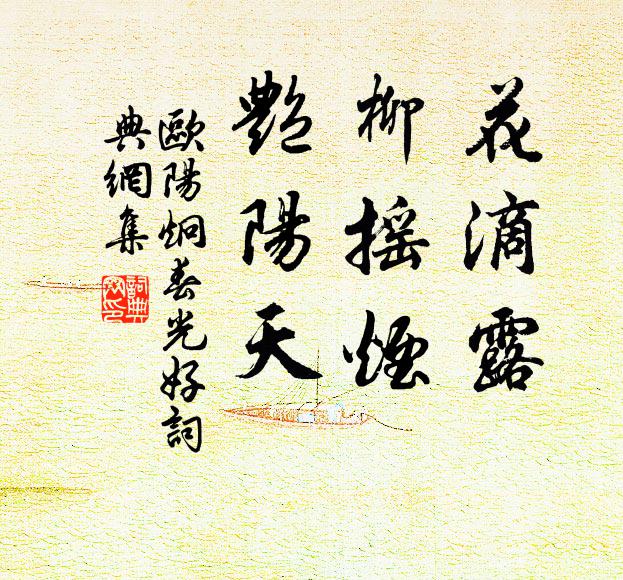 花滴露
柳摇煙
艷陽天
歐陽炯春光好詞
典網集
詞典